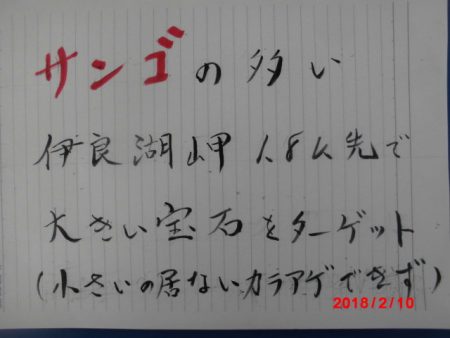 サンゴの多い
伊良湖岬 1.8k先で
大きい宝石をターゲット
(小さいの居ないカラアゲできず)
2018/2/10